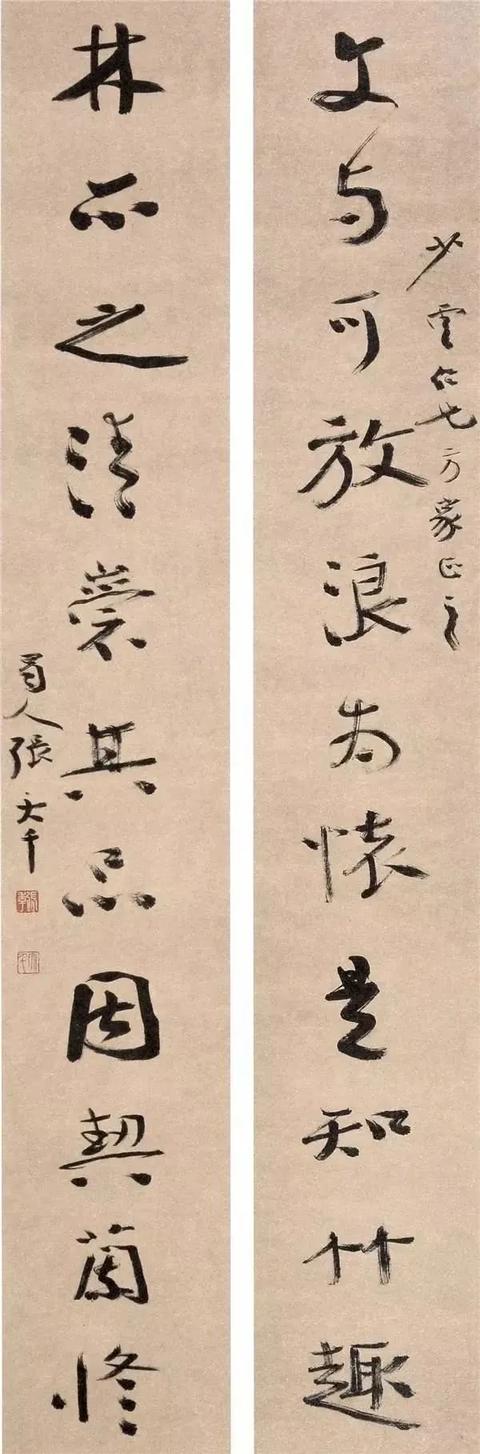 文与可放浪为懷是知竹趣
少雲仁兄方家正之
林和之清襟其品因契蘭修
蜀人張大千